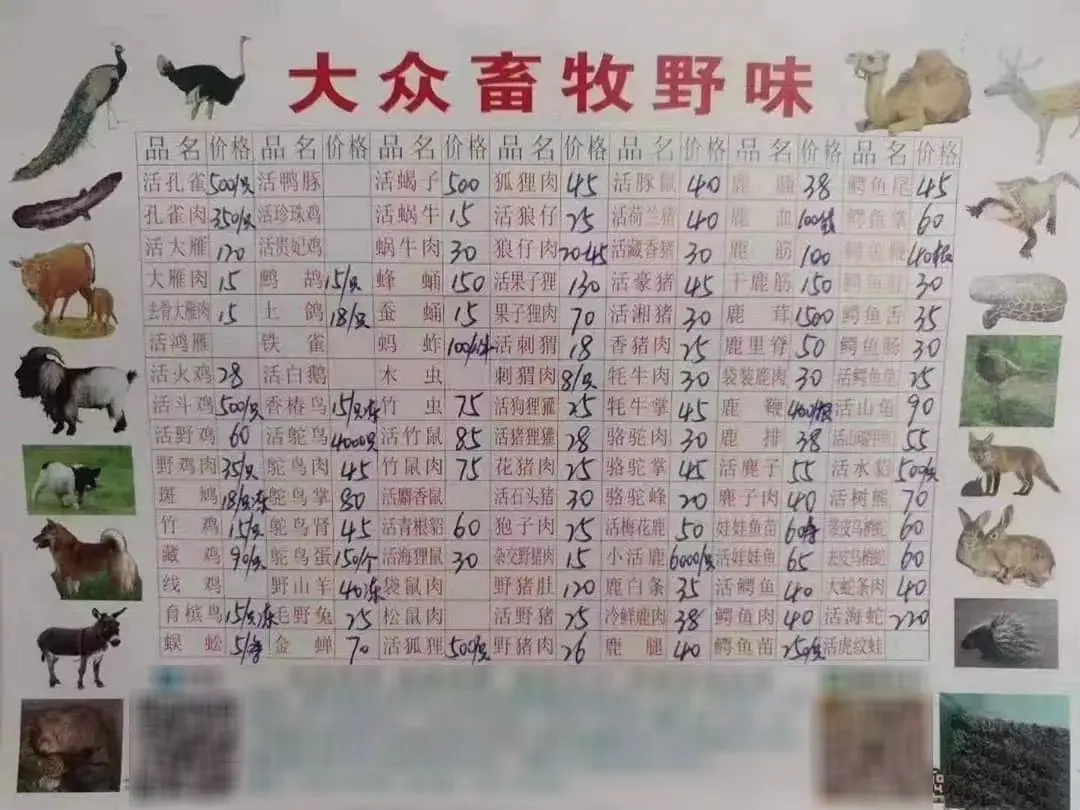 大众畜牧野味
品名 价格 品名 价格 品名 价格 品名 价格 品名 价格 品名 价格 品名 价格
活孔雀 500/只 活鸭豚 活蝎子 500 狐狸肉 45 活豚鼠 40 鹿 38 鳄鱼尾 45
孔雀肉 350/只 活珍珠鸡 活蜗牛 15 活狼仔 25 活荷兰猪 40 鹿血 鳄鱼掌 60
活大雁 120 活贵妃鸡 蜗牛肉 30 狼仔肉 活藏香猪 30 鹿筋 100 鳄鱼鞭
大雁肉 15 鹧鸪 15/只 蜂蛹 150 活果子狸 130 活豪猪 45 干鹿筋 150 鳄鱼 30
去骨大雁肉 15 土鸽 18/只 蚕蛹 15 果子狸肉 70 活湘猪 30 鹿茸 1500 鳄鱼舌 35
活鸿雁 铁雀 蚂蚱 活刺猬 18 香猪肉 25 鹿里脊 50 鳄鱼肠 30
活火鸡 28 活白鹅 木虫 刺猬肉 8/只 牦牛肉 30 袋装鹿肉 30 活鳄龟 25
活斗鸡 500/只 香椿鸟 15/只冻 竹虫 75 活狗狸獾 25 牦牛掌 45 鹿鞭 活山龟 90
活野鸡 60 活鸵鸟 4000只 活竹鼠 85 活猪狸獾 28 骆驼肉 30 鹿排 38 55
野鸡肉 35/只 鸵鸟肉 45 竹鼠肉 75 花猪肉 25 骆驼掌 45 活鹿子 55 活水貂 500/只
斑鸠 18/只冻 鸵鸟掌 80 活麝香鼠 活石头猪 30 骆驼峰 20 鹿子肉 40 活树熊 70
竹鸡 15/只 鸵鸟肾 45 活青根貂 60 狍子肉 25 活梅花鹿 50 娃娃鱼苗 带皮乌梢蛇 60
藏鸡 90/只 鸵鸟蛋 150/个 活海狸鼠 30 杂交野猪肉 15 小活鹿 6000/只 活娃娃鱼 65 去皮乌梢蛇 60
线鸡 野山羊 40冻 袋鼠肉 野猪肚 120 鹿白条 35 活鳄鱼 40 大蛇条肉 40
育槟鸟 15/只冻 毛野兔 25 松鼠肉 活野猪 25 冷鲜鹿肉 38 鳄鱼肉 40 活海蛇 220
蜈蚣 金蝉 70 活狐狸 500/只 野猪肉 26 鹿腿 40 鳄鱼苗 250/只 活虎纹蛙